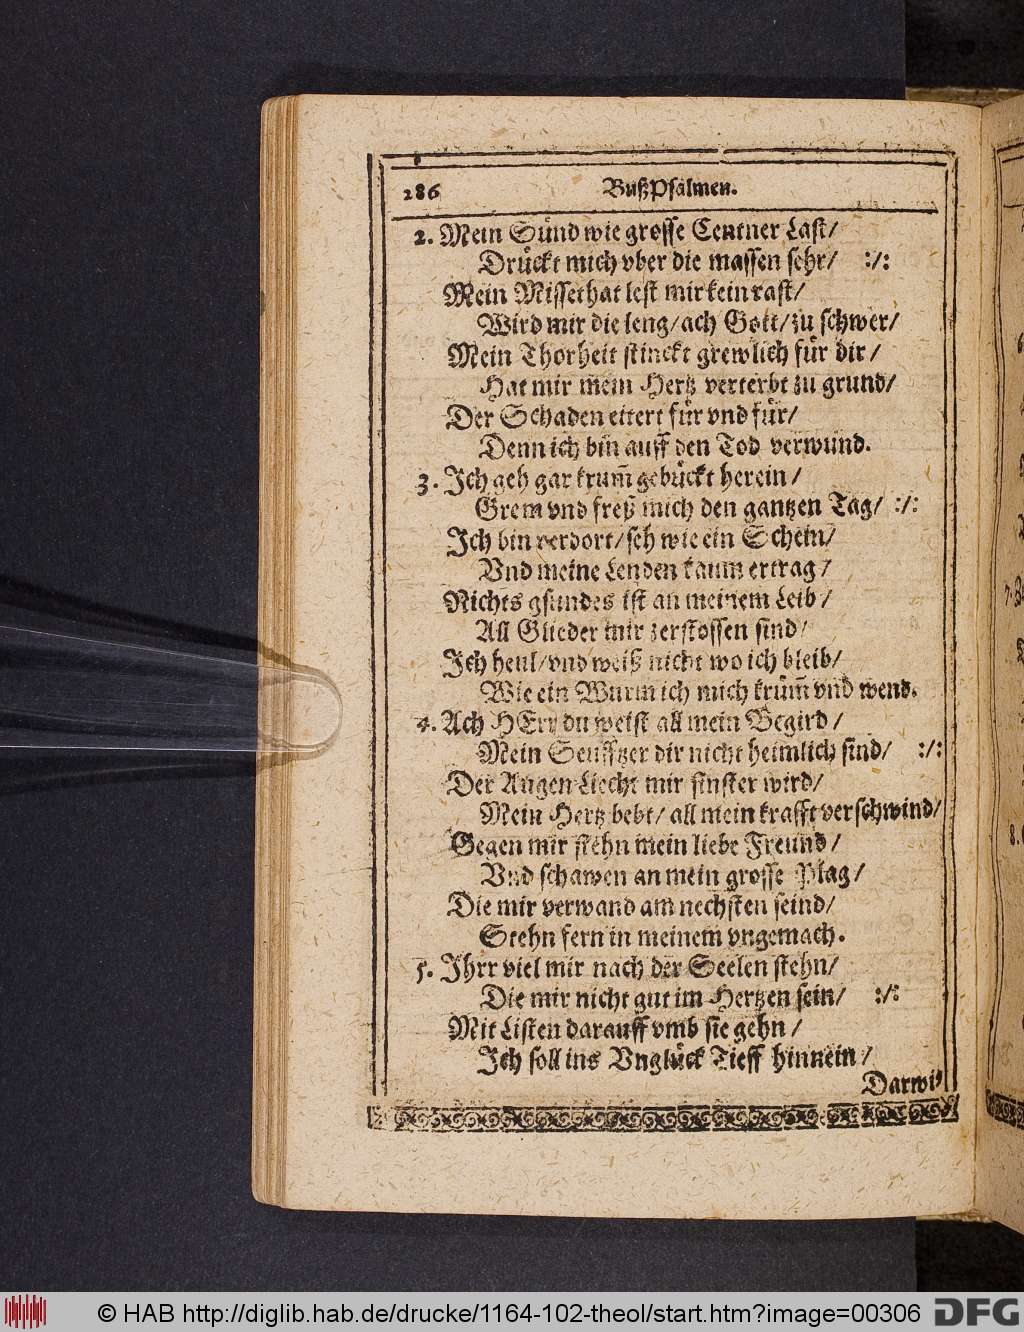 286 BußPsalmen.
2. Mein Sünd wie grosse Centner Last/
Drückt mich vber die massen sehr/ :/:
Mein Missethat lest mir kein rast/
Wird mir die leng/ach Gott/zu schwer/
Mein Thorheit stinckt grewlich für dir/
Hat mir mein Hertz verterbt zu grund/
Der Schaden eitert für vnd für/
Denn ich bin auff den Tod verwund.
3. Ich geh gar krum̃ gebückt herein/
Grem vnd freß mich den gantzen Tag/ :/:
Ich bin verdort/seh wie ein Schein/
Vnd meine Lenden kaum ertrag/
Nichts gsundes ist an meinem Leib/
All Glieder mir zerstossen sind/
Ich heul/vnd weiß nicht wo ich bleib/
Wie ein Wurm ich mich krüm̃ vnd wend.
4. Ach HErr du weist all mein Begird/
Mein Seufftzer dir nicht heimlich sind/ :/:
Der Augen Liecht mir finster wird/
Mein Hertz bebt/ all mein krafft verschwind/
Gegen mir stehn mein liebe Freund/
Vnd schawen an mein grosse Plag/
Die mir verwand am nechsten seind/
Stehn fern in meinem vngemach.
5. Ihrr viel mir nach der Seelen stehn/
Die mir nicht gut im Hertzen sein/ :/:
Mit Listen darauff vmb sie gehn/
Ich soll ins Vnglück Tieff hinnein/
Darwi
© HAB http://diglib.hab.de/drucke/1164-102-theol/start.htm?image=00306 DFG